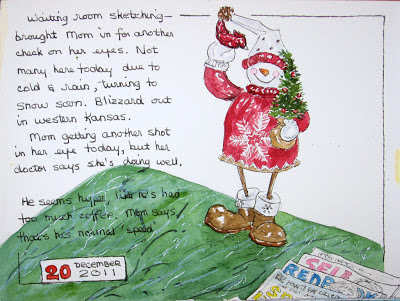 Waiting room sketching—
brought Mom in for another
check on her eyes. Not
many here today due to
cold & rain, turning to
snow soon. Blizzard out
in western Kansas.
Mom getting another shot
in her eye today, but her
doctor says she's doing well.
He seems hyper, like he's had
too much coffee. Mom says,
that's his normal speed
20 DECEMBER
2011
SELF
READ